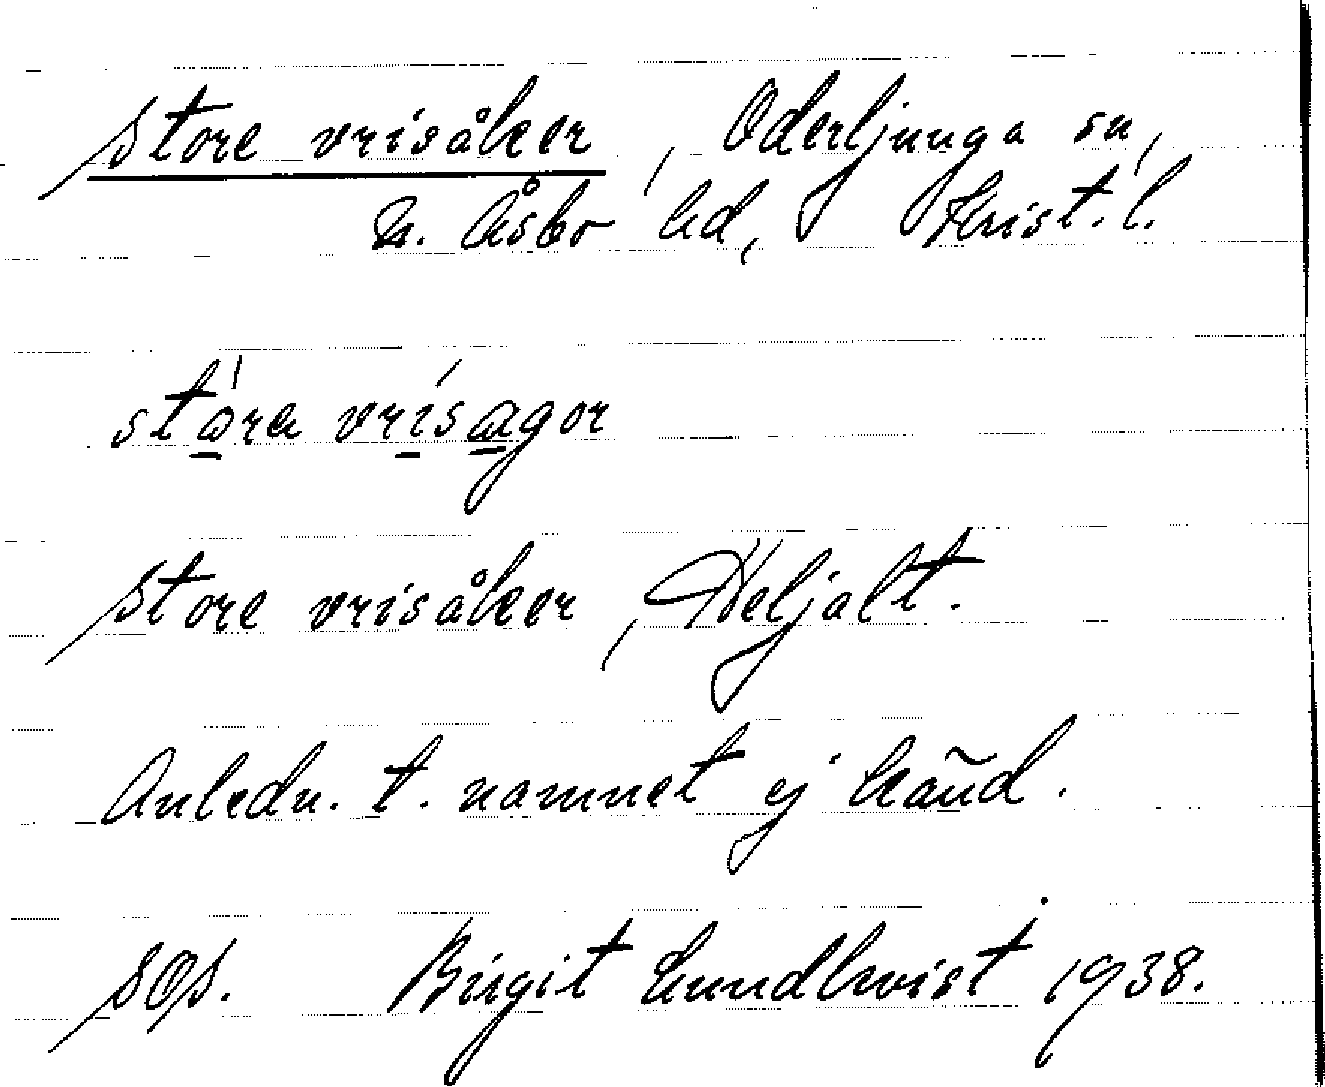 Store vrisåker, Oderljunga sn,
N. Åsbo hd, Krist. l.
stọ́ra vrísagor
Store vrisåker, Heljalt.
Anledn. t. namnet ej känd.
Birgit Lundkvist 1938.